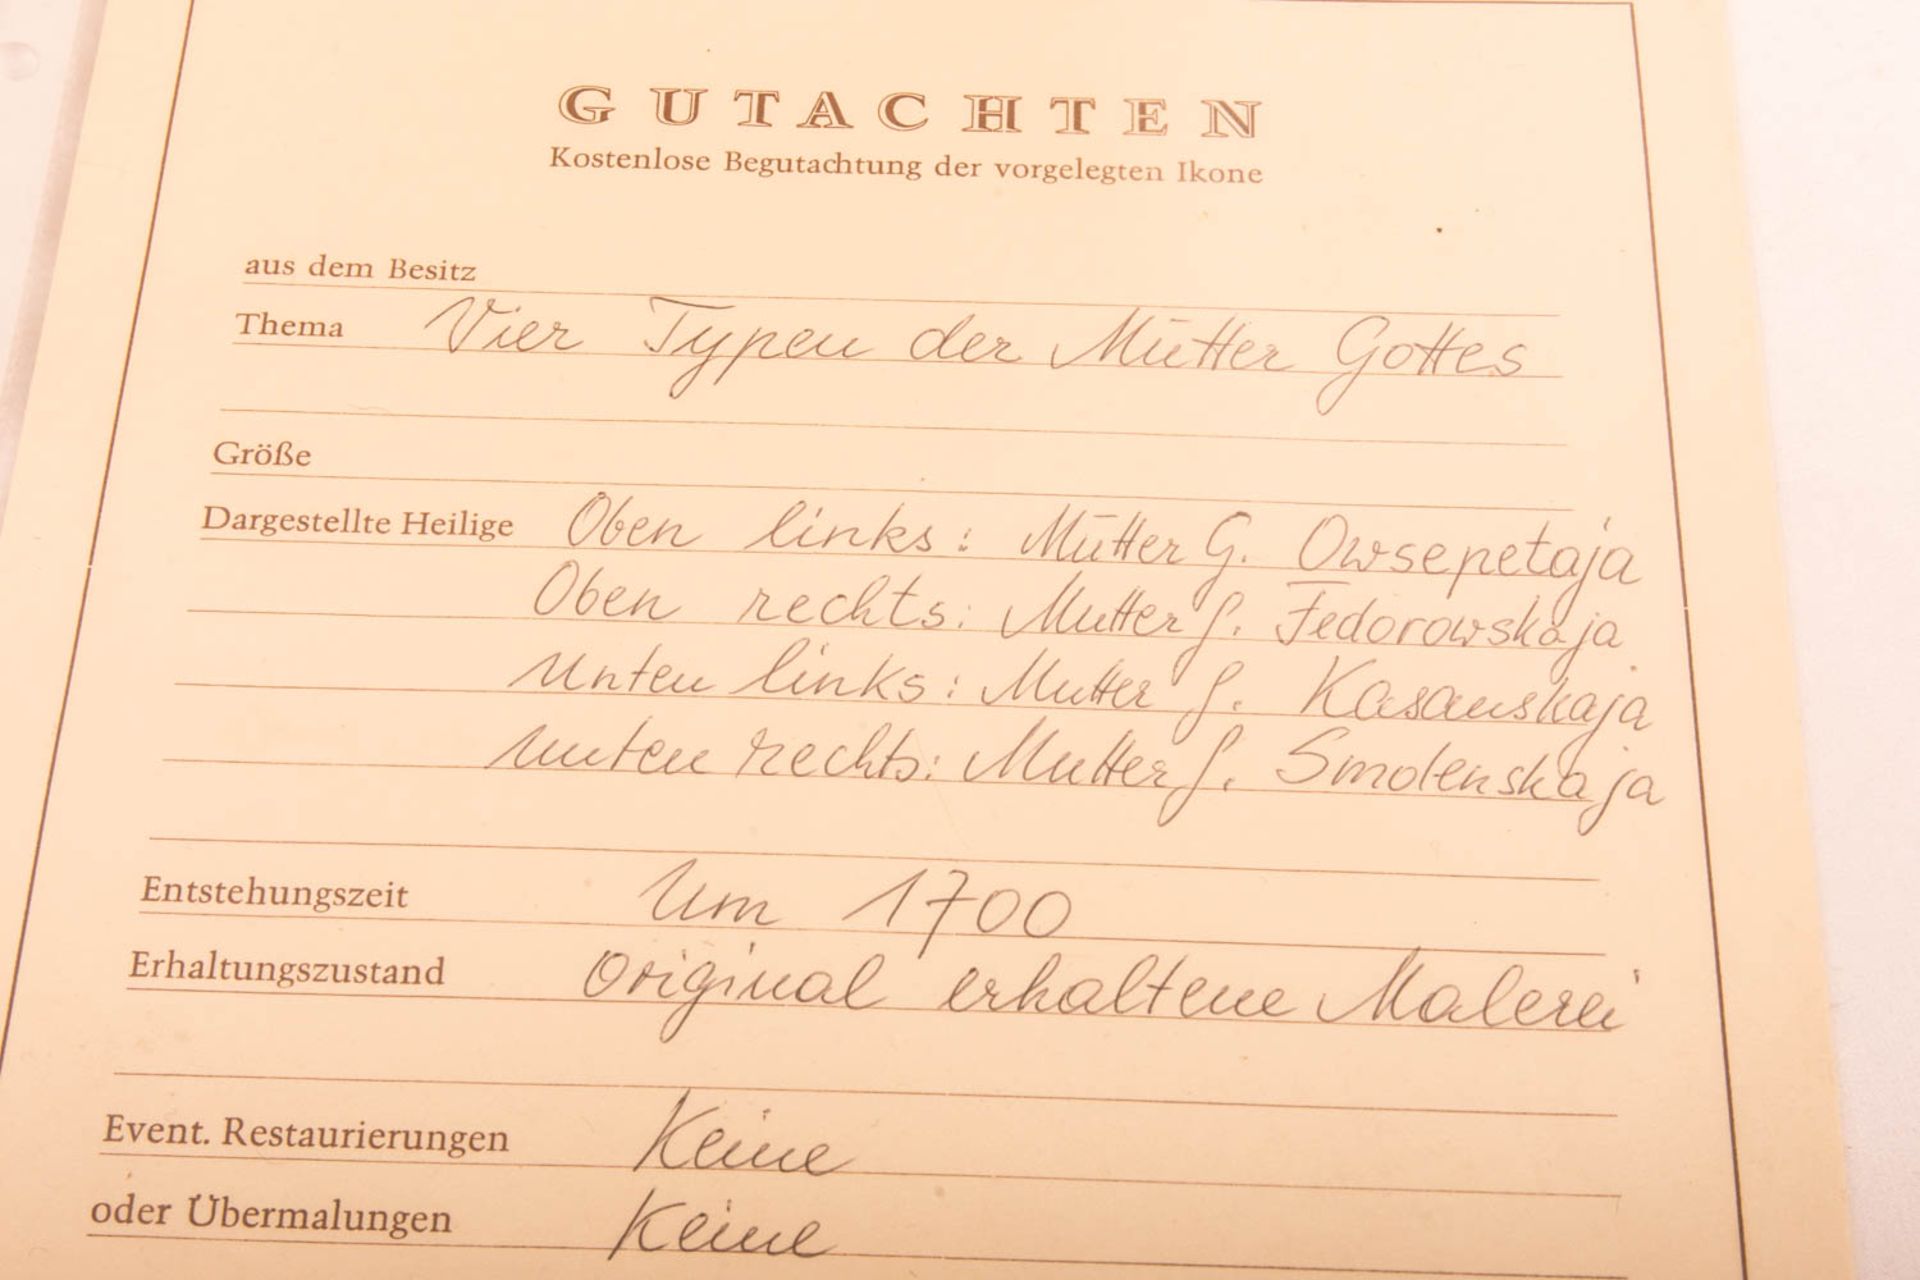 GUTACHTEN
Kostenlose Begutachtung der vorgelegten Ikone
aus dem Besitz
Thema Vier Typen der Mutter Gottes
Größe
Dargestellte Heilige Oben links: Mutter G. Owsepetaja
Oben rechts: Mutter G. Fedorowskaja
Unten links: Mutter G. Kasanskaja
Unten rechts: Mutter G. Smolenskaja
Entstehungszeit Um 1700
Erhaltungszustand Original erhaltene Malerei
Event. Restaurierungen Keine
oder Übermalungen Keine